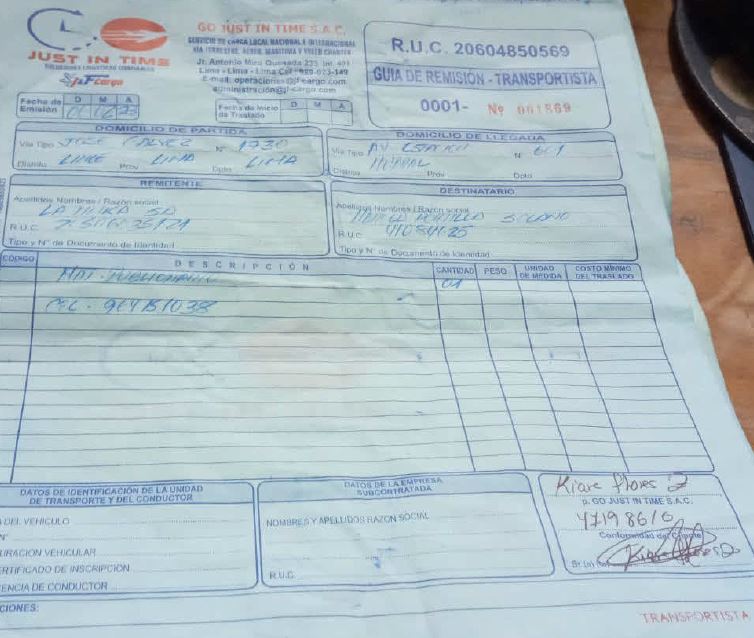 GO JUST IN TIME S.A.C.
SERVICIO DE CARGA LOCAL NACIONAL E INTERNACIONAL
VIA TERRESTRE, AEREO, MARITIMA Y VUELO CHARTER
Jr. Antonio Miro Quesada 233 Int. 401
Lima - Lima - Lima Cel
E-mail: operaciones@jf-cargo.com
administracion@jf-cargo.com
JUST IN TIME
J&F cargo
R.U.C. 20604850569
GUIA DE REMISIÓN - TRANSPORTISTA
0001- Nº 001869
Fecha de Emisión D M A
Fecha de Inicio de Traslado D M A
DOMICILIO DE PARTIDA
Vía Tipo JOSE GALVEZ N° 1730
Distrito LINCE Prov LIMA Dpto LIMA
DOMICILIO DE LLEGADA
Vía Tipo AV N° 601
Distrito Prov Dpto
REMITENTE
Apellidos Nombres / Razón social
R.U.C.
Tipo y N° de Documento de Identidad
DESTINATARIO
Apellidos Nombres / Razón social
R.U.C.
Tipo y N° de Documento de Identidad
CÓDIGO DESCRIPCIÓN CANTIDAD PESO UNIDAD DE MEDIDA COSTO MÍNIMO DEL TRASLADO
01
DATOS DE IDENTIFICACIÓN DE LA UNIDAD
DE TRANSPORTE Y DEL CONDUCTOR
DEL VEHICULO
N°
URACION VEHICULAR
ERTIFICADO DE INSCRIPCION
ENCIA DE CONDUCTOR
DATOS DE LA EMPRESA
SUBCONTRATADA
NOMBRES Y APELLIDOS RAZON SOCIAL
R.U.C.
Kiare flores Z
p. GO JUST IN TIME S.A.C.
47198616
Conformidad del Cliente
Sr.(a)
CIONES:
TRANSPORTISTA